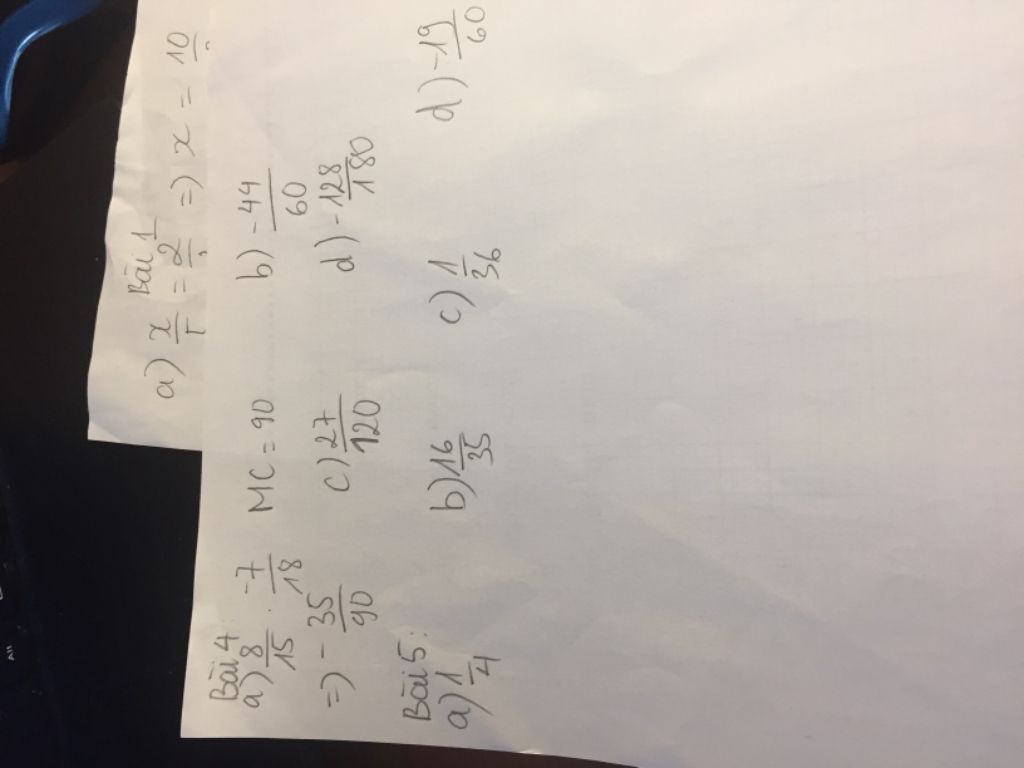 Bài 1
a) x/5 = 2/ => x = 10/
Bài 4:
a) 8/15 ; -7/18 MC = 90 b) -44/60
=> -35/90 c) 27/120 d) -128/180
Bài 5:
a) 1/4 b) 16/35 c) 1/36 d) -19/60